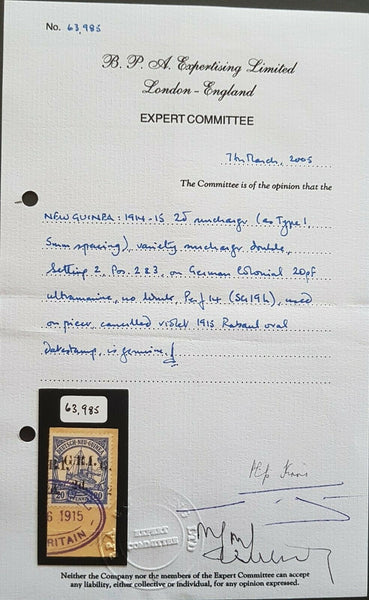 No. 63,985
B. P. A. Expertising Limited
London - England
EXPERT COMMITTEE
7th March, 2005
The Committee is of the opinion that the
NEW GUINEA: 1914-15 2d surcharge (as Type 1,
5mm spacing), variety surcharge double,
Setting 2, Pos. 2 & 3, on German Colonial 20pf
ultramarine, no wmk, Perf 14 (SG 19h), used
on piece cancelled violet 1915 Rabaul oval
datestamp, is genuine.
63,985
DEUTSCH-NEU-GUINEA
G.R.I.
2d.
20
6 1915
RITAIN
EXPERT
COMMITTEE
LTD
Neither the Company nor the members of the Expert Committee can accept
any liability, either collective or individual, for any opinion expressed.